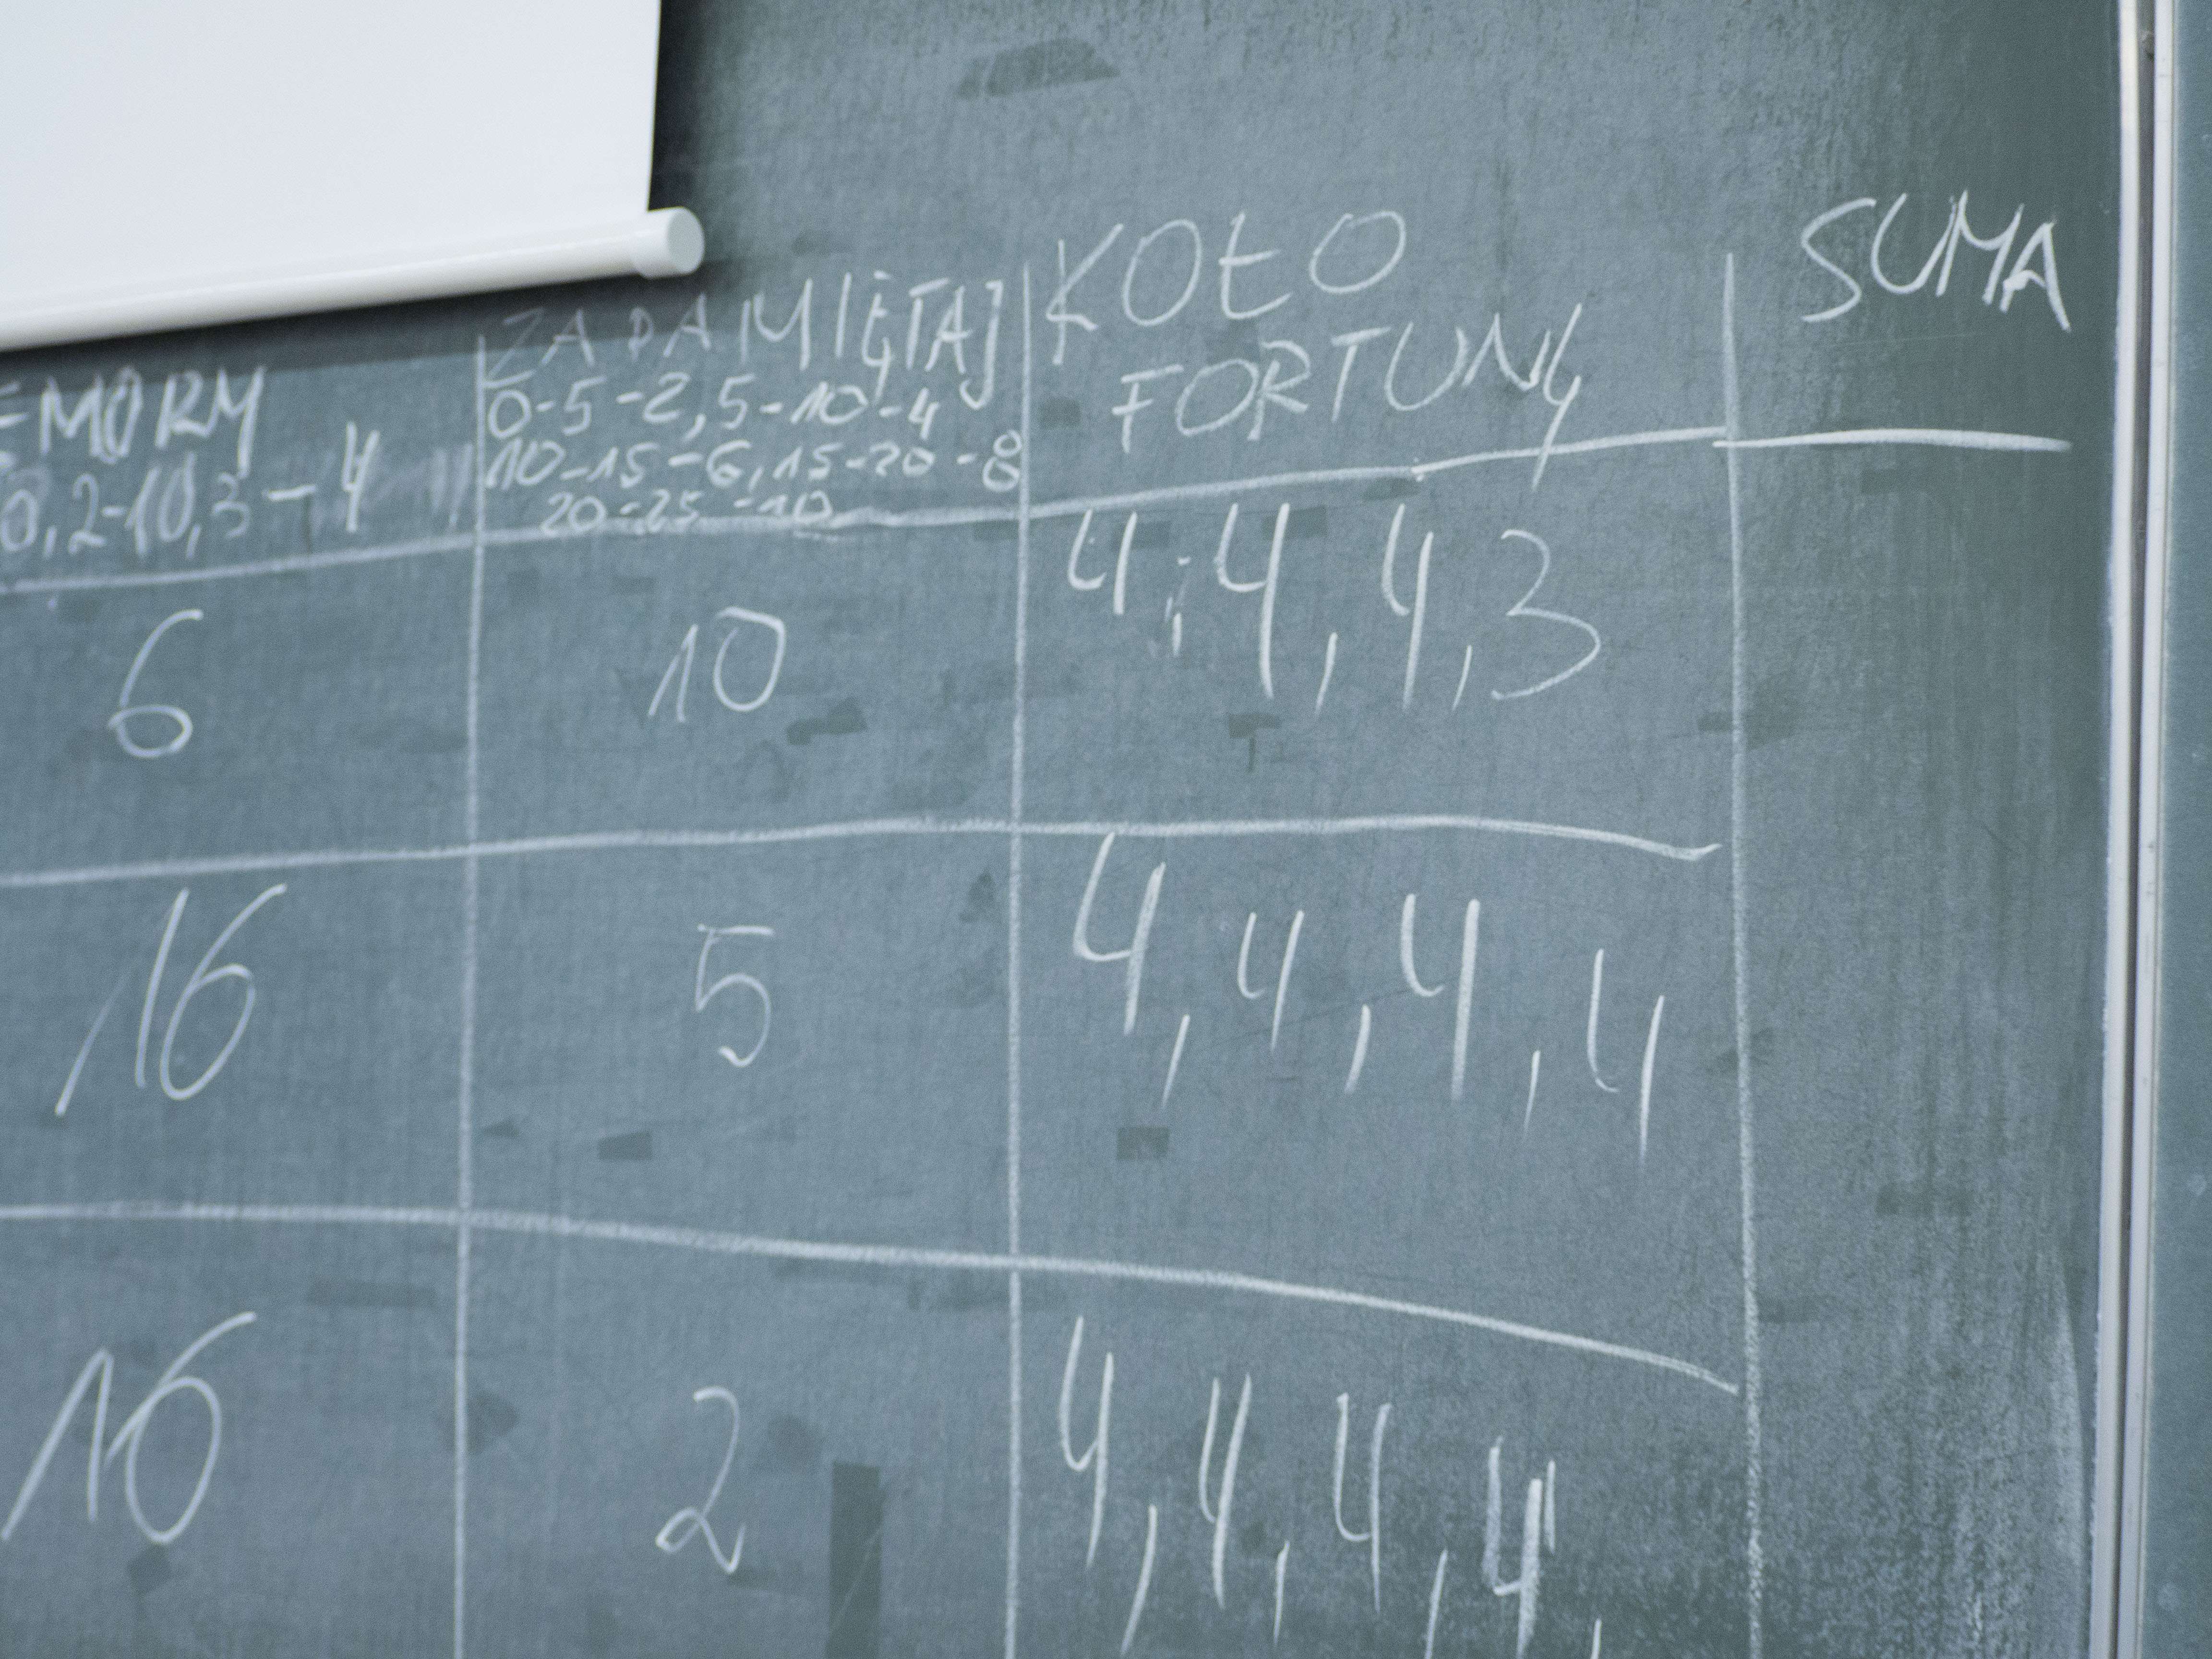 EMORY
0,2-10,3-4
ZAPAMIĘTAJ
0-5-2,5-10-4
10-15-6,15-20-8
20-25-10
KOŁO
FORTUNY
SUMA
6
10
4,4,4,3
16
5
4,4,4,4
16
2
4,4,4,4,